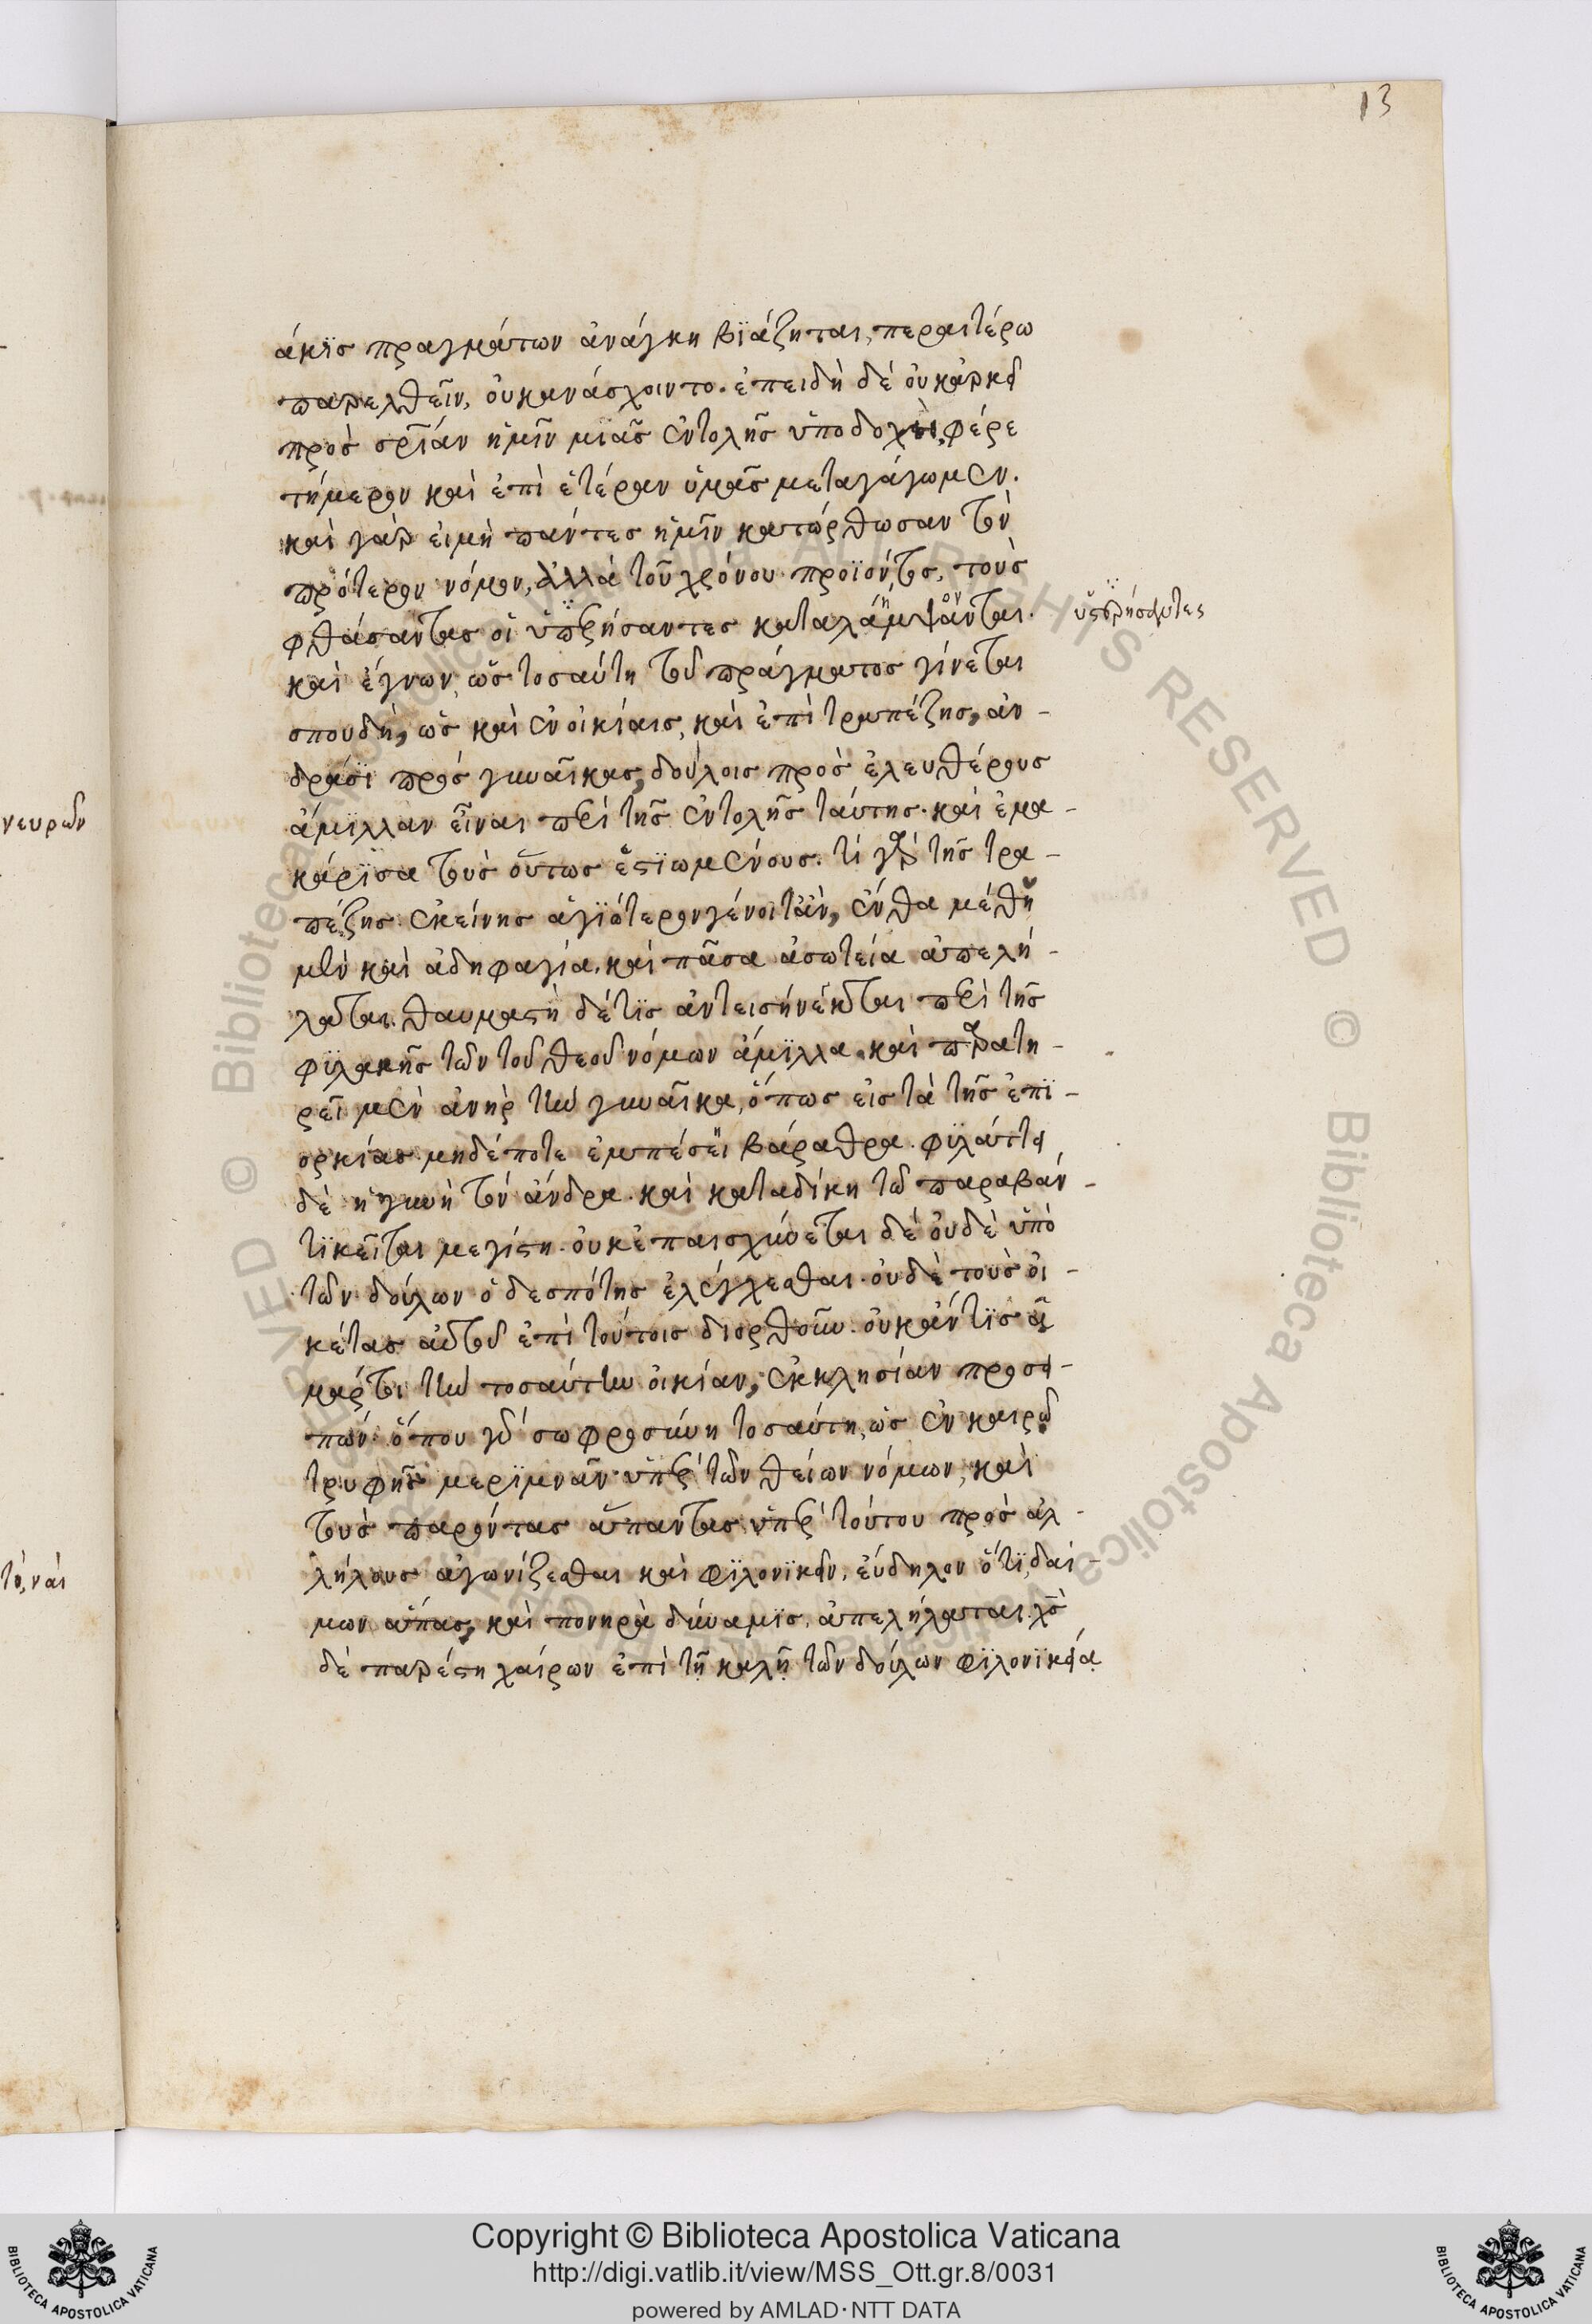 13
άκϊς πραγμάτων ἀνάγκη βϊάζηται, περαιτέρω
παρελθεῖν, οὐκ ἀνάσχοιντο. ἐπειδὴ δὲ οὐκ ἀρκεῖ
πρὸς σρΐαν ἡμῖν μϊᾶς ἐντολῆς ὑποδοχὴ, φέρε
τήμερον καὶ ἐπὶ ἑτέραν ὑμᾶς μεταγάγωμεν.
καὶ γὰρ εἰ μὴ πάντες ἡμῖν κατώρθωσαν τὸν
πρότερον νόμον, ἀλλὰ τοῦ χρόνου προϊόντος, τοὺς
φθάσαντας οἱ ὑστερήσαντες καταλάμψονται.
ὑστερήσαντες
καὶ ἔγνων, ὡς τοσαύτη τοῦ πράγματος γίνεται
σπουδὴ, ὡς καὶ ἐν οἰκίαις, καὶ ἐπὶ τραπέζης, ἀν-
δράσι πρὸς γυναῖκας, δούλοις πρὸς ἐλευθέρους
ἅμϊλλαν εἶναι περὶ τῆς ἐντολῆς ταύτης. καὶ ἐμα-
κάρϊσα τοὺς οὕτως ἑστϊωμένους. τί γὰρ τῆς τρα-
πέζης ἐκείνης ἁγϊώτερον γένοιτ' ἂν, ἔνθα μέθη
μὲν καὶ ἀδηφαγία, καὶ πᾶσα ἀσωτεία ἀπελή-
λαται. θαυμαστὴ δέ τϊς ἀντεισήνεκται περὶ τῆς
φϋλακῆς τῶν τοῦ θεοῦ νόμων ἅμϊλλα. καὶ παρατη-
ρεῖ μὲν ἀνὴρ τὴν γυναῖκα, ὅπως εἰς τὰ τῆς ἐπϊ-
ορκίας μηδέποτε ἐμπέσῃ βάραθρα. φϋλάττει
δὲ ἡ γυνὴ τὸν ἄνδρα. καὶ καταδίκη τῷ παραβάν-
τϊ κεῖται μεγίστη. οὐκ ἐπαισχύνεται δὲ οὐδὲ ὑπὸ
τῶν δούλων ὁ δεσπότης ἐλέγχεσθαι. οὐδὲ τοὺς οἰ-
κέτας αὐτοῦ ἐπὶ τούτοις διορθοῦν. οὐκ ἄν τϊς ἁ
μάρτοι τὴν τοσαύτην οἰκίαν, ἐκκλησίαν προσει-
πών. ὅπου γὰρ σωφροσύνη τοσαύτη, ὡς ἐν καιρῷ
τρυφῆς μερϊμνᾶν ὑπὲρ τῶν θείων νόμων, καὶ
τοὺς παρόντας ἅπαντας ὑπὲρ τούτου πρὸς ἀλ-
λήλους ἀγωνίζεσθαι καὶ φϊλονϊκεῖν, εὔδηλον ὅτϊ δαί-
μων ἅπας, καὶ πονηρὰ δύναμϊς, ἀπελήλαται. χς
δὲ παρέστη χαίρων ἐπὶ τῇ καλῇ τῶν δούλων φϊλονϊκεία
νευρῶν
τὸ, ναὶ
Copyright © Biblioteca Apostolica Vaticana
http://digi.vatlib.it/view/MSS_Ott.gr.8/0031
powered by AMLAD·NTT DATA